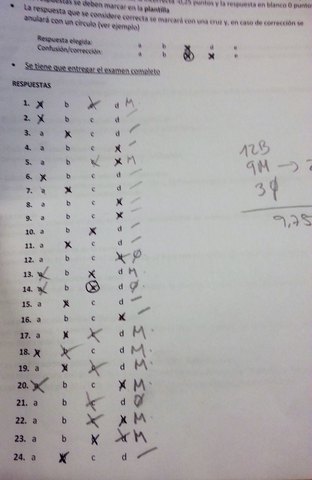 puestas se deben marcar en la plantilla
La respuesta que se considere correcta se marcará con una cruz y, en caso de corrección se
anulará con un círculo (ver ejemplo)
Respuesta elegida: a b x d e
Confusión/corrección: a b x x e
Se tiene que entregar el examen completo
RESPUESTAS
1. x b x d M
2. x b c d
3. a x c d
4. a b c x
5. a b x x M
6. x b c d
7. a x c d
8. a b c x
9. a b c x
10. a b x d
11. a x c d
12. a b c x Ø
13. x b x d M
14. x b x d Ø
15. a x c d
16. a b c x
17. a x x d M
18. x x c d M
19. a x x d M
20. x b c x M
21. a b x d Ø
22. a b x x M
23. a b x x M
24. a x c d
12B
9M →
3Ø
9,75